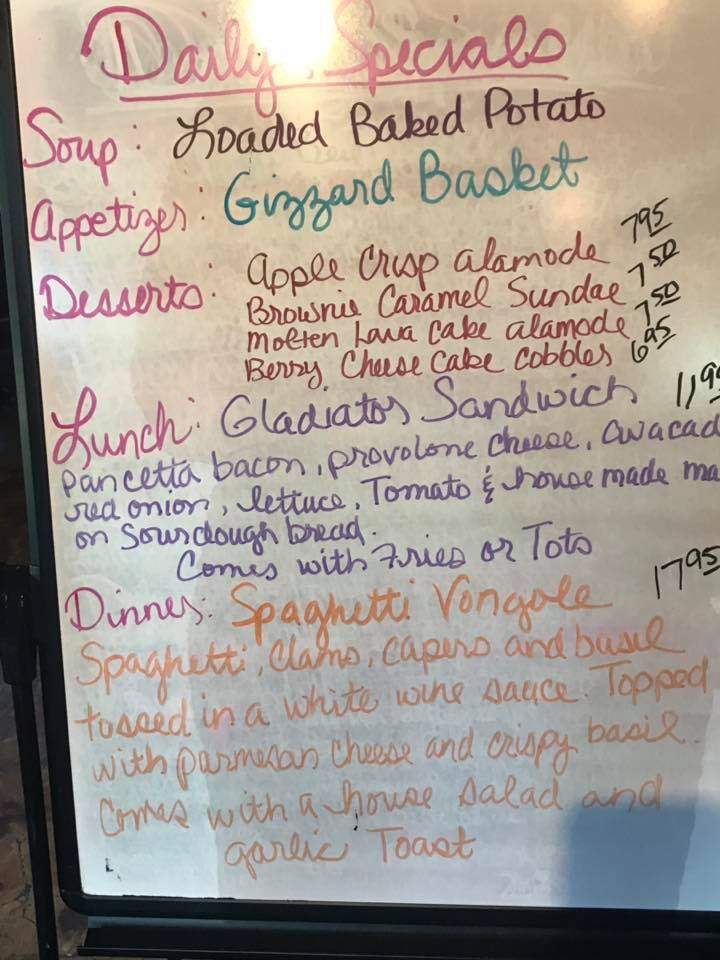 Daily Specials
Soup: Loaded Baked Potato
Appetizer: Gizzard Basket
Desserts: Apple Crisp alamode 7 95
Brownie Caramel Sundae 7 50
Molten Lava Cake alamode 7 50
Berry Cheese Cake Cobbler 6 95
Lunch: Gladiator Sandwich 11,9
pancetta bacon, provolone cheese, awacad
red onion, lettuce, Tomato & house made ma
on Sourdough bread.
Comes with Fries or Tots
Dinner: Spaghetti Vongole 17 95
Spaghetti, Clams, capers and basil
tossed in a white wine sauce. Topped
with parmesan cheese and crispy basil.
Comes with a house salad and
garlic Toast